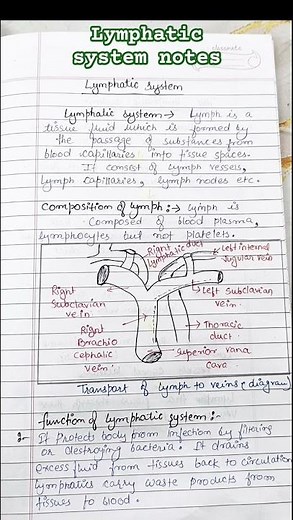 Lymphatic
system notes
Lymphatic system
Lymphatic system → Lymph is a
tissue fluid which is formed by
the passage of substances from
blood capillaries into tissue spaces.
It consist of lymph vessels,
lymph capillaries, lymph nodes etc.
Composition of lymph :→ lymph is
composed of blood plasma,
lymphocytes but not platelets.
Right
lymphatic duct
Left internal
jugular vein
Right
Subclavian
vein
Left Subclavian
vein
Right
Brachio
cephalic
vein
Thoracic
duct
Superior vana
Cava
Transport of lymph to veins (diagram)
function of lymphatic system :-
It Protects body from infection by filtering
or destroying bacteria. It drains
excess fluid from tissues back to circulation
lymphatics carry waste products from
tissues to blood.